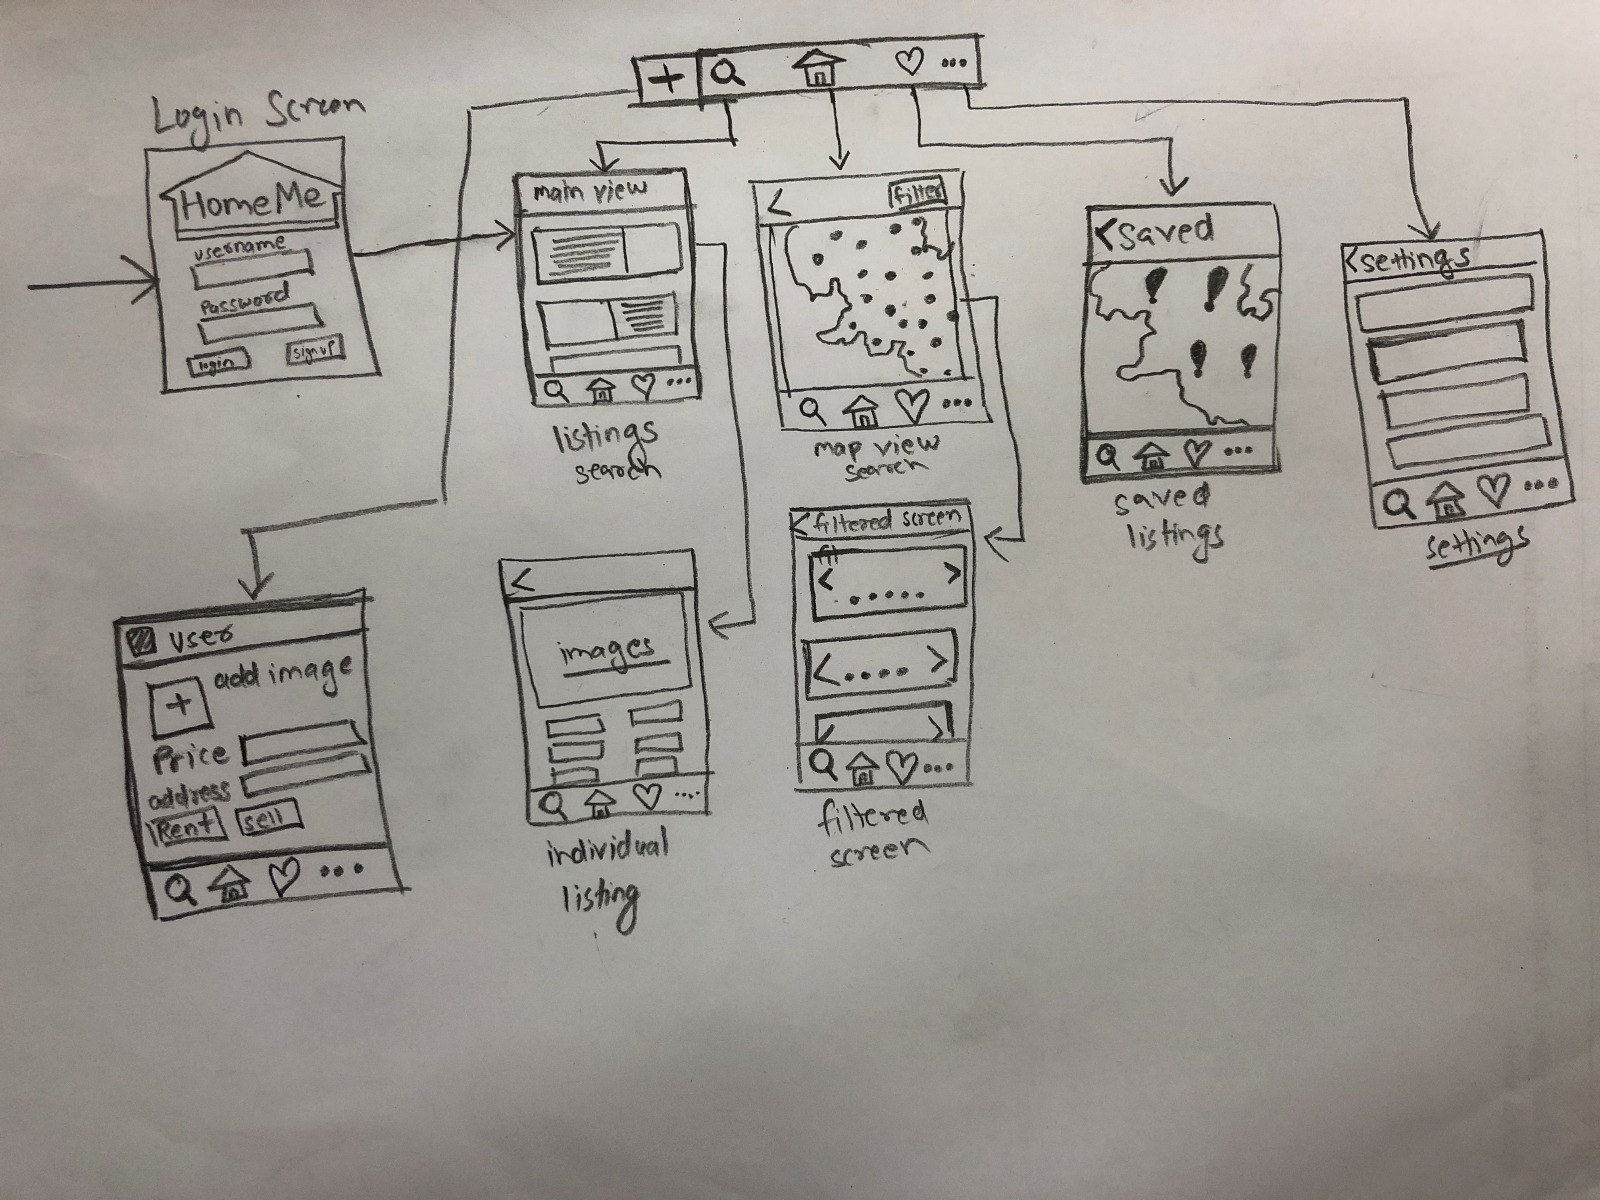 Login Screen
HomeMe
username
Password
login
sign up
main view
listings
search
filter
map view
search
saved
saved
listings
settings
settings
user
add image
Price
address
Rent
sell
images
individual
listing
filtered screen
fil
filtered
screen